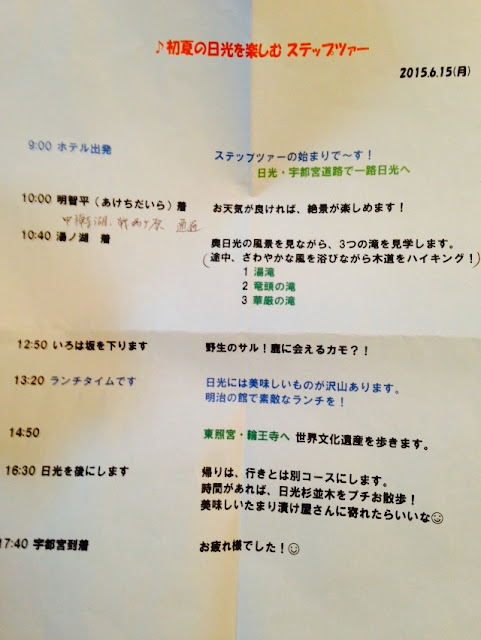 ♪初夏の日光を楽しむ ステップツァー
2015.6.15(月)
9:00 ホテル出発 ステップツァーの始まりで〜す！
日光・宇都宮道路で一路日光へ
10:00 明智平（あけちだいら）着 お天気が良ければ、絶景が楽しめます！
中禅寺湖、戦場ヶ原 通過
10:40 湯ノ湖 着 奥日光の風景を見ながら、3つの滝を見学します。
(途中、さわやかな風を浴びながら木道をハイキング！)
1 湯滝
2 竜頭の滝
3 華厳の滝
12:50 いろは坂を下ります 野生のサル！鹿に会えるカモ？！
13:20 ランチタイムです 日光には美味しいものが沢山あります。
明治の館で素敵なランチを！
14:50 東照宮・輪王寺へ 世界文化遺産を歩きます。
16:30 日光を後にします 帰りは、行きとは別コースにします。
時間があれば、日光杉並木をプチお散歩！
美味しいたまり漬け屋さんに寄れたらいいな☺
17:40 宇都宮到着 お疲れ様でした！☺